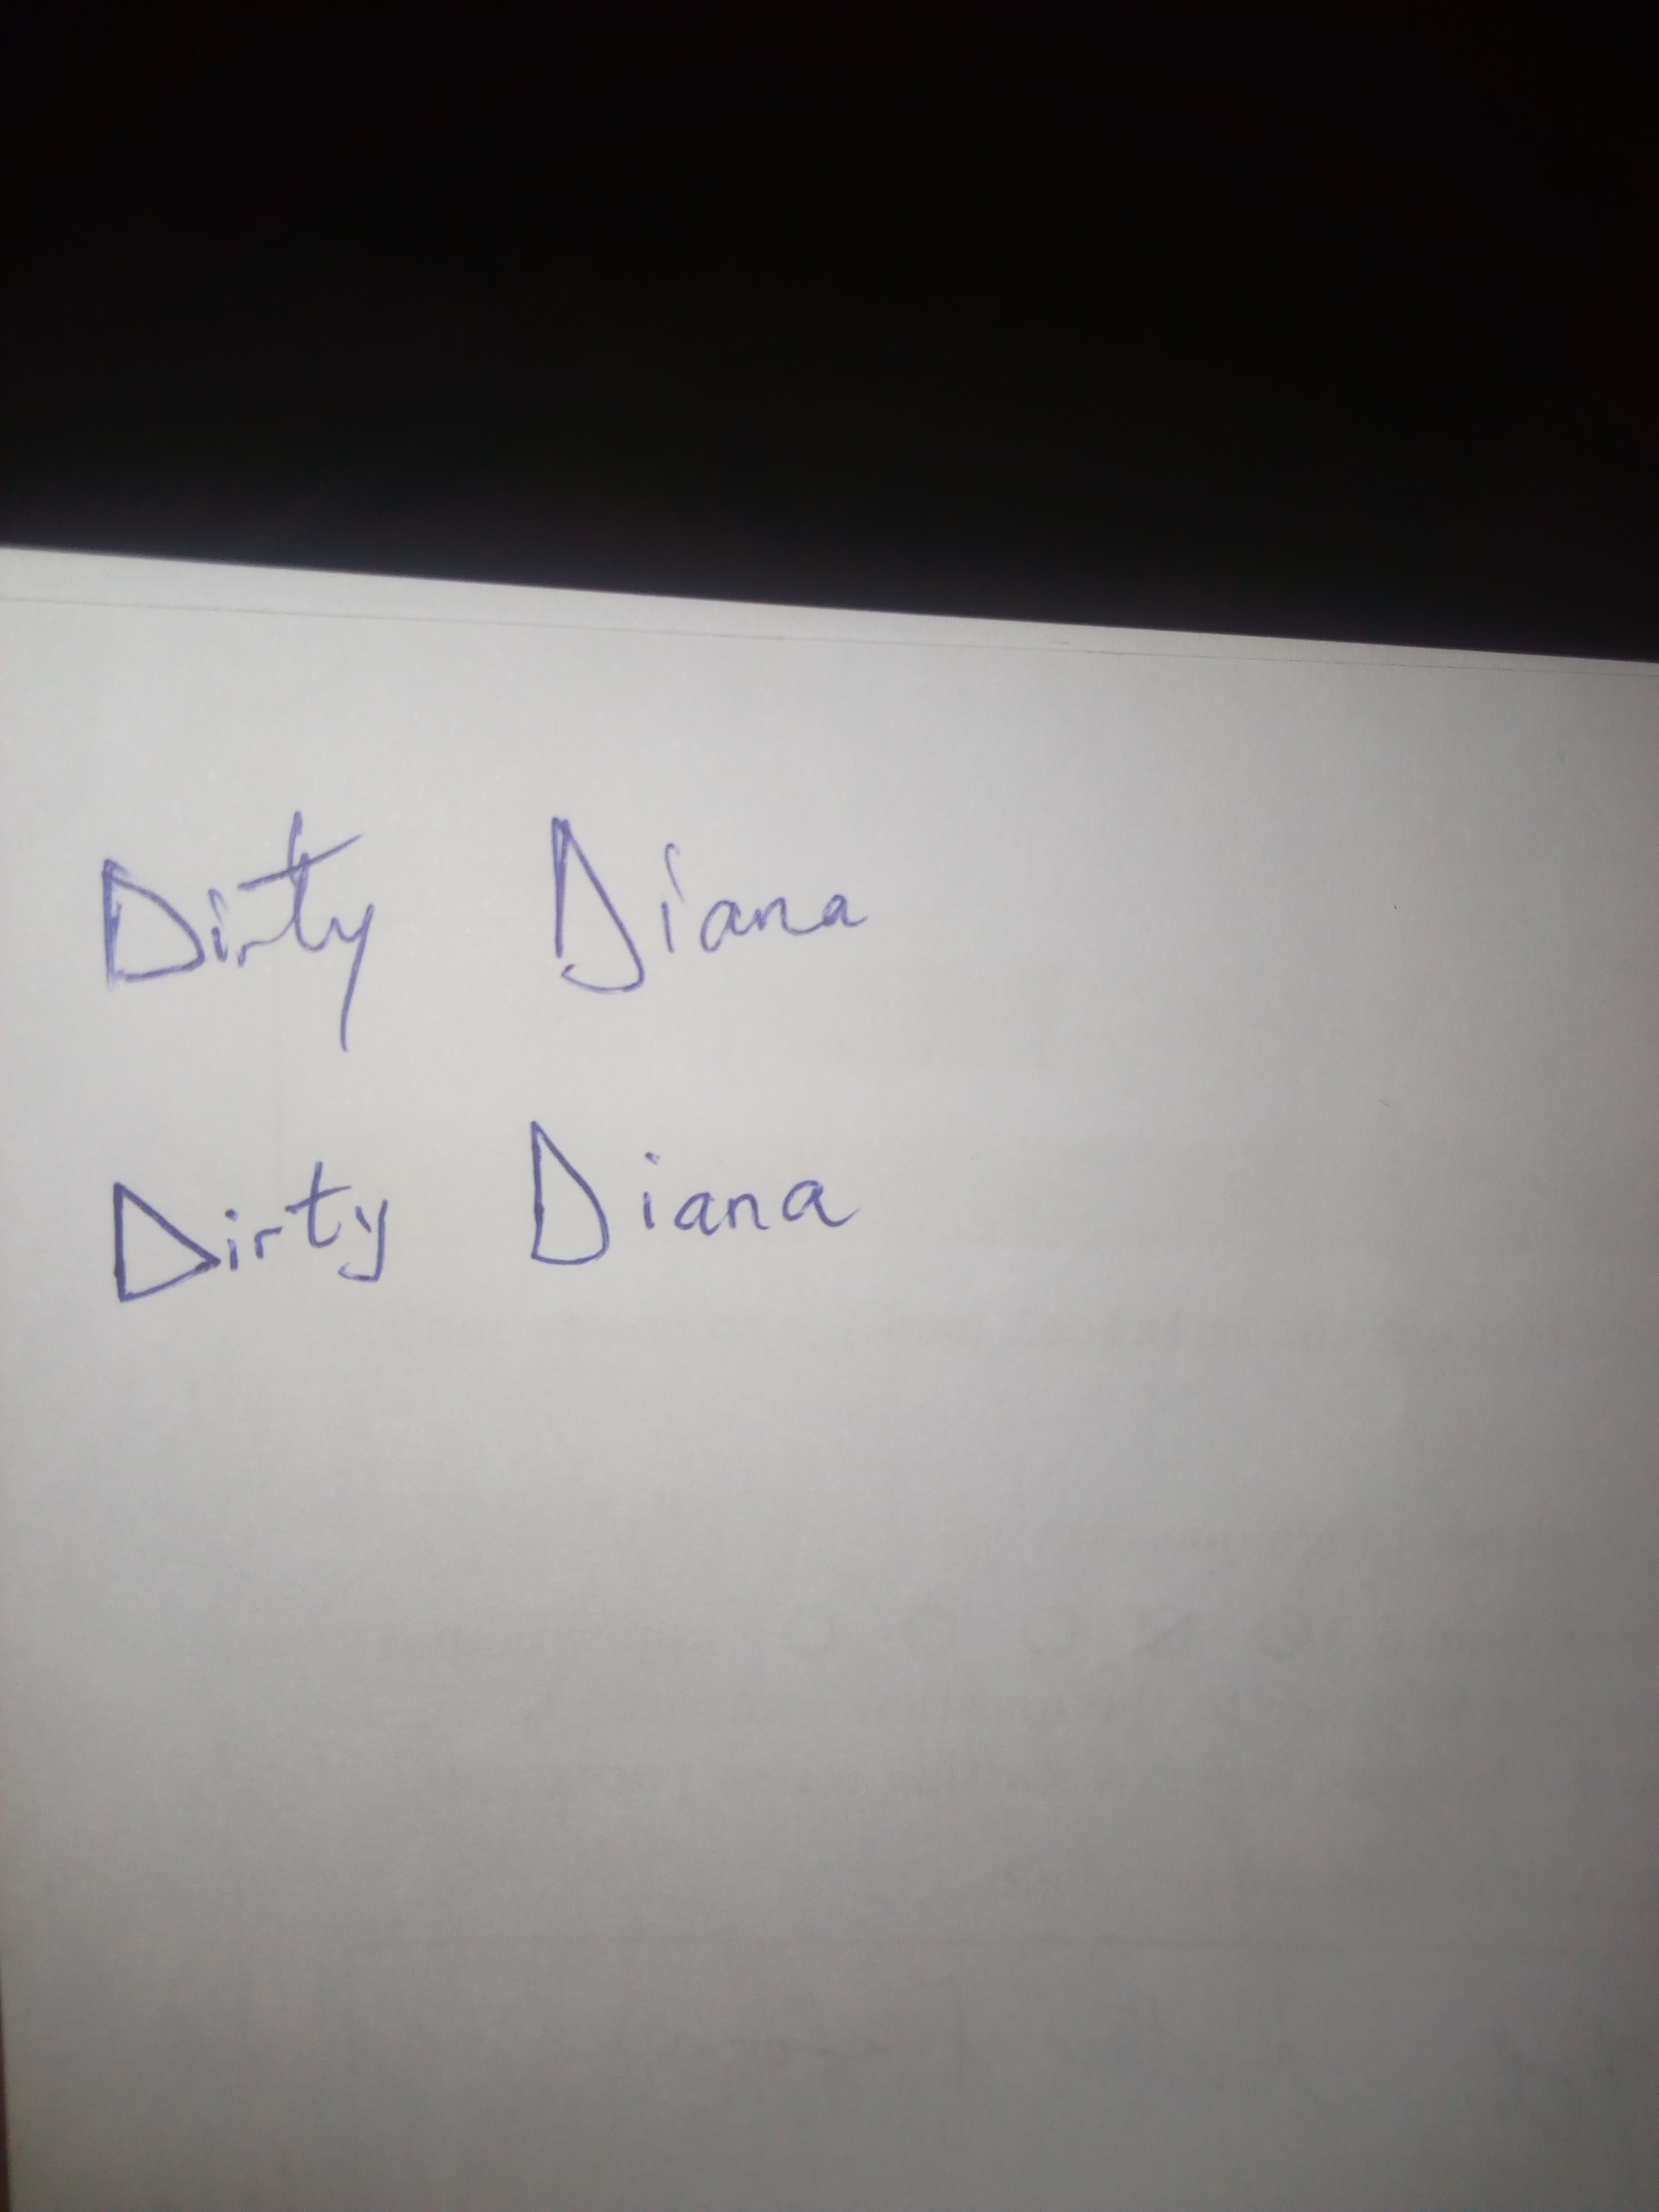 Dirty Diana
Dirty Diana